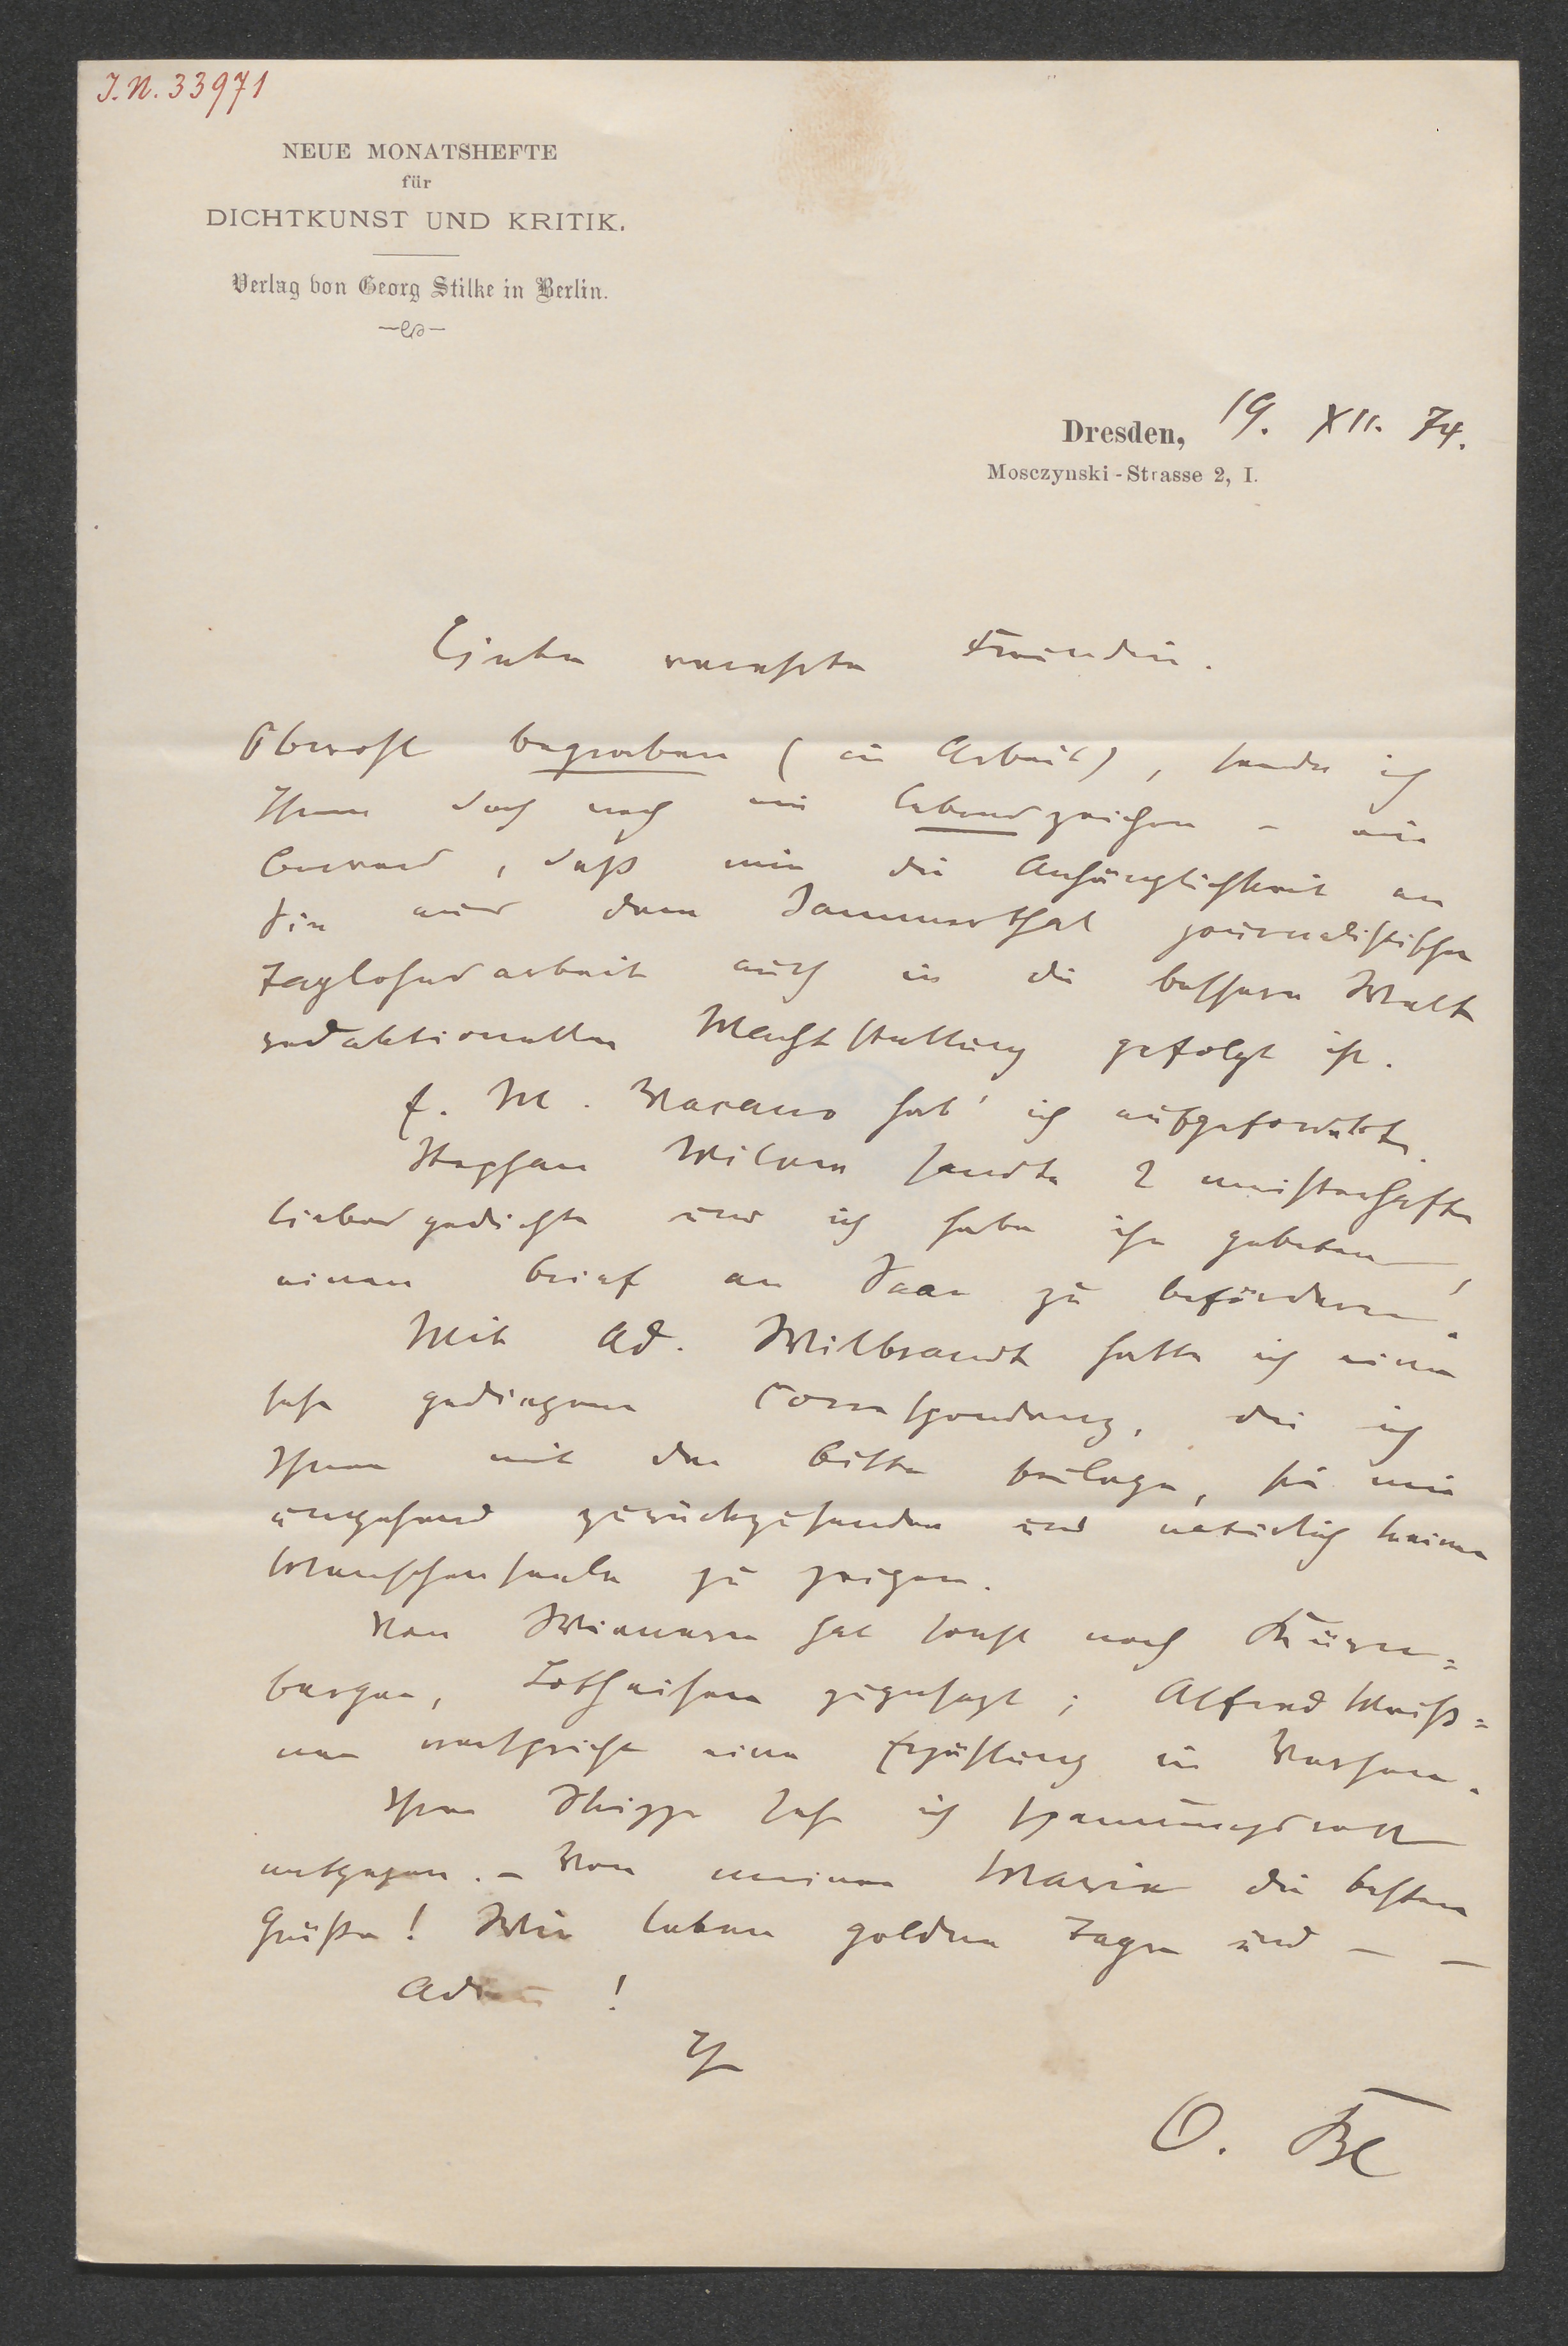 J. N. 33971
NEUE MONATSHEFTE
für
DICHTKUNST UND KRITIK.
Verlag von Georg Stilke in Berlin.
Dresden, 19. XII. 74.
Mosczynski-Strasse 2, I.
Liebe verehrte Freundin.
Obwohl begraben (in Arbeit), sende ich
Ihnen doch noch ein Lebenszeichen – ein
Beweis, daß mir die Anhänglichkeit an
Sie aus dem Jammerthal journalistischer
Taglohnsarbeit auch in die bessere Welt
redaktioneller Machtstellung gefolgt ist.
F. M. Vacano hab' ich aufgefordert.
Stephan Milow sandte 2 meisterhafte
Liebesgedichte und ich habe ihn gebeten,
einen Brief an Saar zu befördern.
Mit Ad. Wilbrandt hatte ich eine
sehr gediegene Correspondenz, die ich
Ihnen mit der Bitte beilege, sie mir
umgehend zurückzusenden und natürlich keiner
Menschenseele zu zeigen.
Von Wienern hat sonst noch Kürn=
berger, Lotheisen zugesagt; Alfred Meiß=
ner verspricht eine Erzählung in Versen.
Ihrer Skizze sehe ich spannungsvoll
entgegen. – Von meiner Marie die besten
Grüße! Wir leben goldene Tage und – –
Adieu!
Ihr
O. Bl